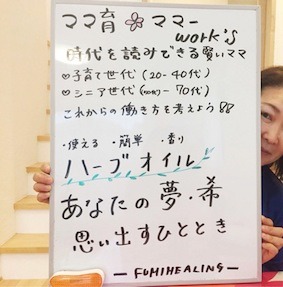 ママ育 ママー
work's
時代を読みできる賢いママ
♡子育て世代(20-40代)
♡シニア世代(50代~70代)
これからの働き方を考えよう
・使える ・簡単 ・香り
ハーブオイル
あなたの夢・希
思い出すひととき
— FUMIHEALING —